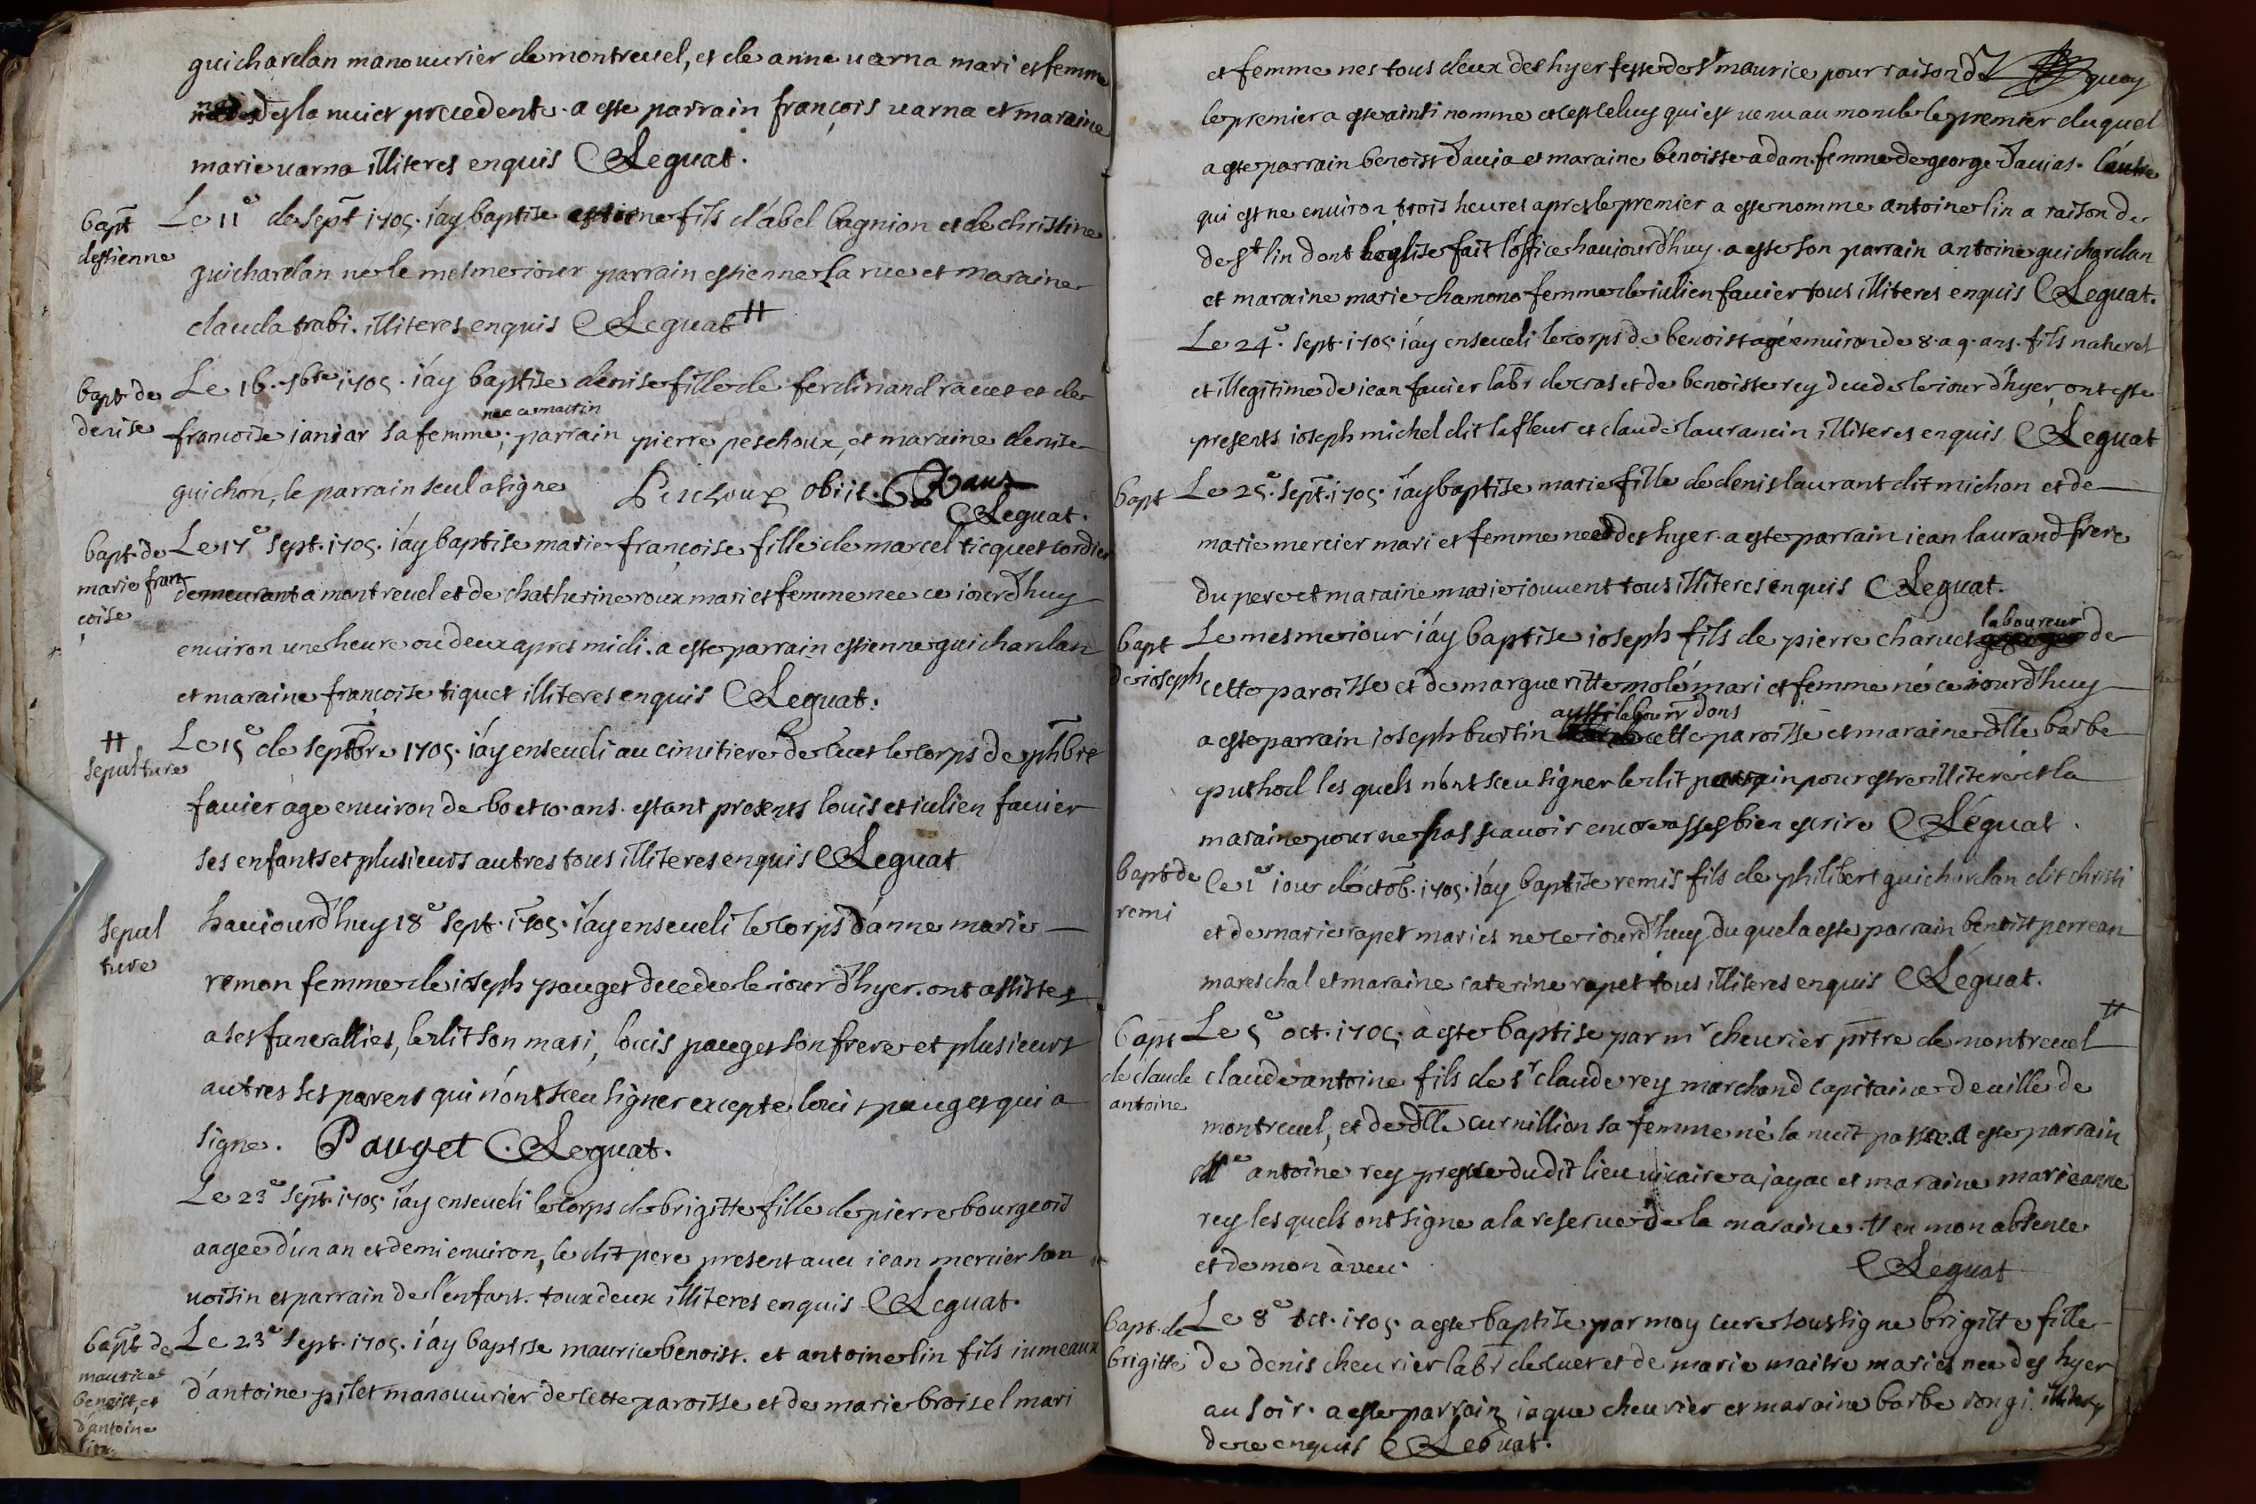 guichardan manouvrier de montrevel, et de anne varna mari et femme
née des la nuict precedente. a este parrain françois varna et maraine
marie varna illiteres enquis Leguat.
bapt
destienne
Le 11e de sept 1705. iáy baptise estiene fils d'abel bagnion et de christine
guichardan ne le mesme iour parrain estienne la rue et maraine
clauda trabi. illiteres enquis Leguat #
bapt. de
denise
Le 16. 7bre 1705. iáy baptise denise fille de ferdinand ravet et de
francoise ianiar sa femme, nee ce matin parrain pierre peschoux, et maraine denise
guichon, le parrain seul a signe Peschoux obiit.
Leguat.
bapt. de
marie fran
çoise
Le 17e sept. 1705. iáy baptise marie françoise fille de marcel ticquet cordier
demeurant a montrevel et de chatherine roux mari et femme nee ce iourd'huy
environ une heure ou deux apres midi. a este parrain estienne guichardan
et maraine francoise tiquet illiteres enquis Leguat.
#
sepulture
Le 15e de septbre 1705. iáy enseveli au cimitiere de cuet le corps de phbre
favier age environ de 60 et 10. ans. estant presents louis et iulien favier
ses enfants et plusieurs autres tous illiteres enquis Leguat
sepul
ture
haujourd'huy 18e sept. 1705. iáy enseveli le corps d'anne marie
remon femme de ioseph pauget decedee le iour d'hyer. ont assistes
a ses funerallies, ledit son mari, louis pauget son frere et plusieurs
autres ses parens qui n'ont sceu signer excepte louis pauget qui a
signe. Pauget Leguat.
Le 23e sept. 1705 iáy enseveli le corps de brigitte fille de pierre bourgeois
aagée d'un an et demi environ, le dit pere present avec iean mercier son
voisin et parrain de l'enfant. toux deux illiteres enquis Leguat.
bapt de
maurice
benoist, et
d'antoine
lin
Le 23e sept. 1705. iáy baptise maurice benoist. et antoine lin fils iumeaux
d'antoine pilet manouvrier de cette paroisse et de marie broisel mari
et femme nes tous deux des hyer feste de st maurice pour raison de quoy
le premier a este ainsi nomme et c'est celuy qui est venu au monde le premier duquel
a este parrain benoist Javia et maraine benoiste adam. femme de george Javias. l'autre
qui est ne environ trois heures apres le premier a este nomme antoine lin a raison de
de st lin dont l'eglise fait l'office haujourd'huy. a este son parrain antoine guichardan
et maraine marie chamono femme de iulien favier tous illiteres enquis Leguat.
Le 24e. sept. 1705. iáy enseveli le corps de benoist agé environ de 8. a 9. ans. fils naturel
et illegitime de iean favier labr de cras et de benoiste rey decede le iour d'hyer, ont este
presents ioseph michel dit la fleur et claude laurancin illiteres enquis Leguat
bapt
Le 25e. sept. 1705. iáy baptise marie fille de denis laurant dit michon et de
marie mercier mari et femme nee des hyer. a este parrain iean laurand frere
du pere et maraine marie iouvent tous illiteres enquis Leguat.
bapt
de ioseph
Le mesme iour iáy baptise ioseph fils de pierre charvet laboureur de
cette paroisse et de margueritte molé mari et femme né ce iourd'huy
a este parrain ioseph burtin aussi labourr dons cette paroisse et maraine dlle barbe
puthod les quels n'ont sceu signer ledit parrain pour estre illiteré et la
maraine pour ne pas scavoir encore asses bien escrire Léguat.
bapt de
remi
Le 1er iour d'octob. 1705. iáy baptise remis fils de philibert guichardan dit christi
et de marie rapet maries ne ce iourd'huy du quel a este parrain benoist perrean
mareschal et maraine caterine rapet tous illiteres enquis Léguat.
bapt
de claude
antoine
Le 5e oct. 1705. à este baptise par mr chevrier prtre de montrevel #
claude antoine fils de sr claude rey marchand capitaine de ville de
montrevel, et de dlle curnillion sa femme né la nuit passée a este parrain
Me antoine rey prestre dudit lieu vicaire a jayac et maraine marie anne
rey les quels ont signe a la reserve de la maraine. # en mon absence
et de mon àveu.
Léguat
bapt. de
brigitte
Le 8e oct. 1705. a este baptise par moy cure soussigne brigitte fille
de denis chevrier labr de cuet et de marie maitre maries nee des hyer
au soir. a este parrain iaque chevrier et maraine barbe rongi.
de ce enquis Leguat.